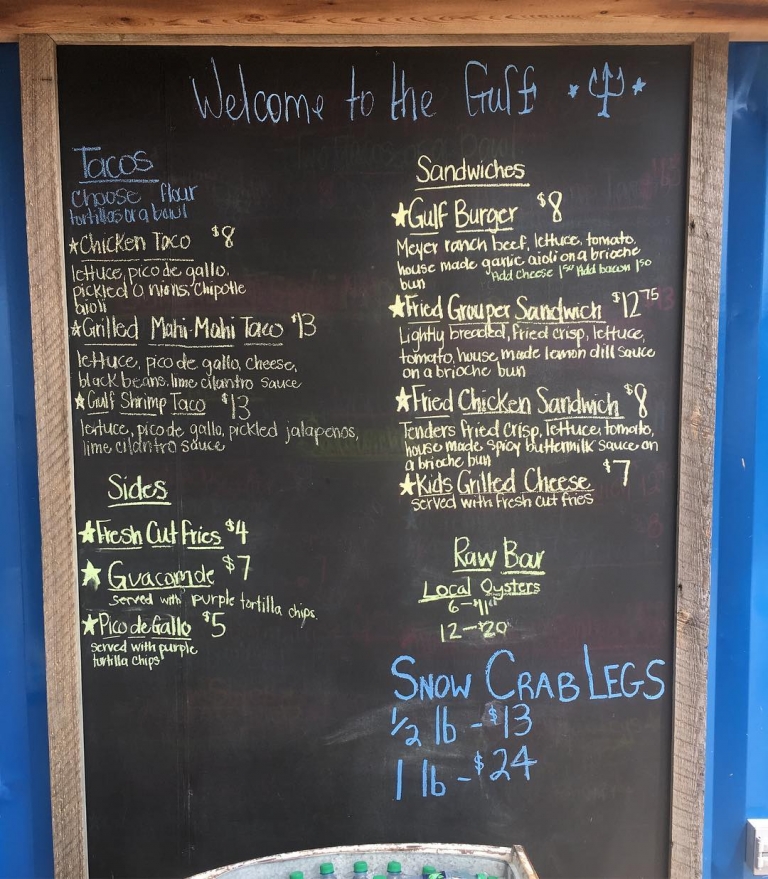 Welcome to the Gulf
Tacos
choose flour
tortillas or a bowl
Chicken Taco $8
lettuce, pico de gallo,
pickled onions, Chipotle
aioli
Grilled Mahi-Mahi Taco $13
lettuce, pico de gallo, cheese,
black beans, lime cilantro sauce
Gulf Shrimp Taco $13
lettuce, pico de gallo, pickled jalapenos,
lime cilantro sauce
Sides
Fresh Cut Fries $4
Guacamole $7
served with purple tortilla chips.
Pico de Gallo $5
served with purple
tortilla chips
Sandwiches
Gulf Burger $8
Meyer ranch beef, lettuce, tomato,
house made garlic aioli on a brioche
bun Add cheese 1.50 Add bacon 1.50
Fried Grouper Sandwich $12.75
Lightly breaded, fried crisp, lettuce,
tomato, house made lemon dill sauce
on a brioche bun
Fried Chicken Sandwich $8
Tenders fried crisp, lettuce, tomato,
house made spicy buttermilk sauce on
a brioche bun
Kids Grilled Cheese $7
served with fresh cut fries
Raw Bar
Local Oysters
6-$11
12-$20
SNOW CRAB LEGS
1/2 lb - $13
1 lb - $24